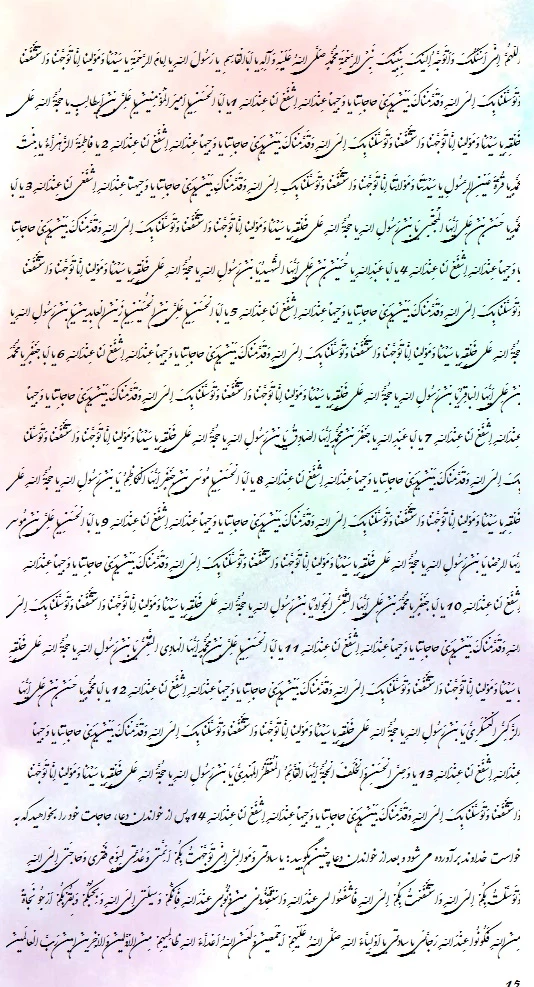 اللهم انی اسئلک و اتوجه الیک بنبیک نبی الرحمة محمد صلی الله علیه و آله یا ابا القاسم یا رسول الله یا امام الرحمة یا سیدنا و مولینا انا توجهنا و استشفعنا
و توسلنا بک الی الله و قدمناک بین یدی حاجاتنا یا وجیها عندالله اشفع لنا عندالله 1 یا ابا الحسن یا امیر المؤمنین یا علی بن ابیطالب یا حجة الله علی
خلقه یا سیدنا و مولینا انا توجهنا و استشفعنا و توسلنا بک الی الله و قدمناک بین یدی حاجاتنا یا وجیها عندالله اشفع لنا عندالله 2 یا فاطمة الزهراء یا بنت
محمد یا قرة عین الرسول یا سیدتنا و مولاتنا انا توجهنا و استشفعنا و توسلنا بک الی الله و قدمناک بین یدی حاجاتنا یا وجیهة عندالله اشفعی لنا عندالله 3 یا ابا
محمد یا حسن بن علی ایها المجتبی یا بن رسول الله یا حجة الله علی خلقه یا سیدنا و مولینا انا توجهنا و استشفعنا و توسلنا بک الی الله و قدمناک بین یدی حاجاتنا
یا وجیها عندالله اشفع لنا عندالله 4 یا ابا عبدالله یا حسین بن علی ایها الشهید یا بن رسول الله یا حجة الله علی خلقه یا سیدنا و مولینا انا توجهنا و استشفعنا
و توسلنا بک الی الله و قدمناک بین یدی حاجاتنا یا وجیها عندالله اشفع لنا عندالله 5 یا ابا الحسن یا علی بن الحسین یا زین العابدین یا بن رسول الله یا
حجة الله علی خلقه یا سیدنا و مولینا انا توجهنا و استشفعنا و توسلنا بک الی الله و قدمناک بین یدی حاجاتنا یا وجیها عندالله اشفع لنا عندالله 6 یا ابا جعفر یا محمد
بن علی ایها الباقر یا بن رسول الله یا حجة الله علی خلقه یا سیدنا و مولینا انا توجهنا و استشفعنا و توسلنا بک الی الله و قدمناک بین یدی حاجاتنا یا وجیها
عندالله اشفع لنا عندالله 7 یا ابا عبدالله یا جعفر بن محمد ایها الصادق یا بن رسول الله یا حجة الله علی خلقه یا سیدنا و مولینا انا توجهنا و استشفعنا و توسلنا
بک الی الله و قدمناک بین یدی حاجاتنا یا وجیها عندالله اشفع لنا عندالله 8 یا ابا الحسن یا موسی بن جعفر ایها الکاظم یا بن رسول الله یا حجة الله علی
خلقه یا سیدنا و مولینا انا توجهنا و استشفعنا و توسلنا بک الی الله و قدمناک بین یدی حاجاتنا یا وجیها عندالله اشفع لنا عندالله 9 یا ابا الحسن یا علی بن موسی
ایها الرضا یا بن رسول الله یا حجة الله علی خلقه یا سیدنا و مولینا انا توجهنا و استشفعنا و توسلنا بک الی الله و قدمناک بین یدی حاجاتنا یا وجیها عندالله
اشفع لنا عندالله 10 یا ابا جعفر یا محمد بن علی ایها التقی الجواد یا بن رسول الله یا حجة الله علی خلقه یا سیدنا و مولینا انا توجهنا و استشفعنا و توسلنا بک الی
الله و قدمناک بین یدی حاجاتنا یا وجیها عندالله اشفع لنا عندالله 11 یا ابا الحسن یا علی بن محمد ایها الهادی النقی یا بن رسول الله یا حجة الله علی خلقه
یا سیدنا و مولینا انا توجهنا و استشفعنا و توسلنا بک الی الله و قدمناک بین یدی حاجاتنا یا وجیها عندالله اشفع لنا عندالله 12 یا ابا محمد یا حسن بن علی ایها
الزکی العسکری یا بن رسول الله یا حجة الله علی خلقه یا سیدنا و مولینا انا توجهنا و استشفعنا و توسلنا بک الی الله و قدمناک بین یدی حاجاتنا یا وجیها
عندالله اشفع لنا عندالله 13 یا وصی الحسن و الخلف الحجة ایها القائم المنتظر المهدی یا بن رسول الله یا حجة الله علی خلقه یا سیدنا و مولینا انا توجهنا
و استشفعنا و توسلنا بک الی الله و قدمناک بین یدی حاجاتنا یا وجیها عندالله اشفع لنا عندالله 14 پس از خواندن دعا، حاجات خود را بخواهید که به
خواست خداوند برآورده می شود و بعد از خواندن دعا چنین بگوید: یا سادتی و موالی انی توجهت بکم ائمتی و عدتی لیوم فقری و حاجتی الی الله
و توسلت بکم الی الله و استشفعت بکم الی الله فاشفعوا لی عندالله و استنقذونی من ذنوبی عندالله فانکم وسیلتی الی الله و بحبکم و بقربکم ارجو نجاة
من الله فکونوا عندالله رجائی یا سادتی یا اولیاء الله صلی الله علیهم اجمعین و لعن الله اعداء الله ظالمیهم من الاولین و الآخرین آمین رب العالمین
15